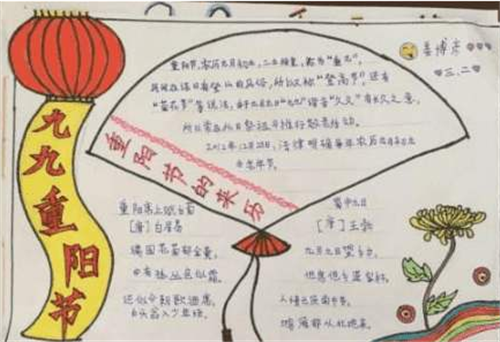 九九重阳节
重阳节,农历九月初九,二九相重,称为“重九”,
民间在该日有登高的风俗,所以又称“登高节”,还有
“菊花节”等说法,由于九月初九“九九”谐音“久久”有长久之意,
所以常在此日祭祖与推行敬老活动。
2012年12月28日,法律明确每年农历九月初九
为老年节。
重阳节的来历
姜博
三.二
重阳席上赋白菊
[唐]白居易
满园花菊郁金黄,
中有孤丛色似霜。
还似今朝歌酒席,
白头翁入少年场。
蜀中九日
[唐]王勃
九月九日望乡台,
他席他乡送客杯。
人情已厌南中苦,
鸿雁那从北地来。